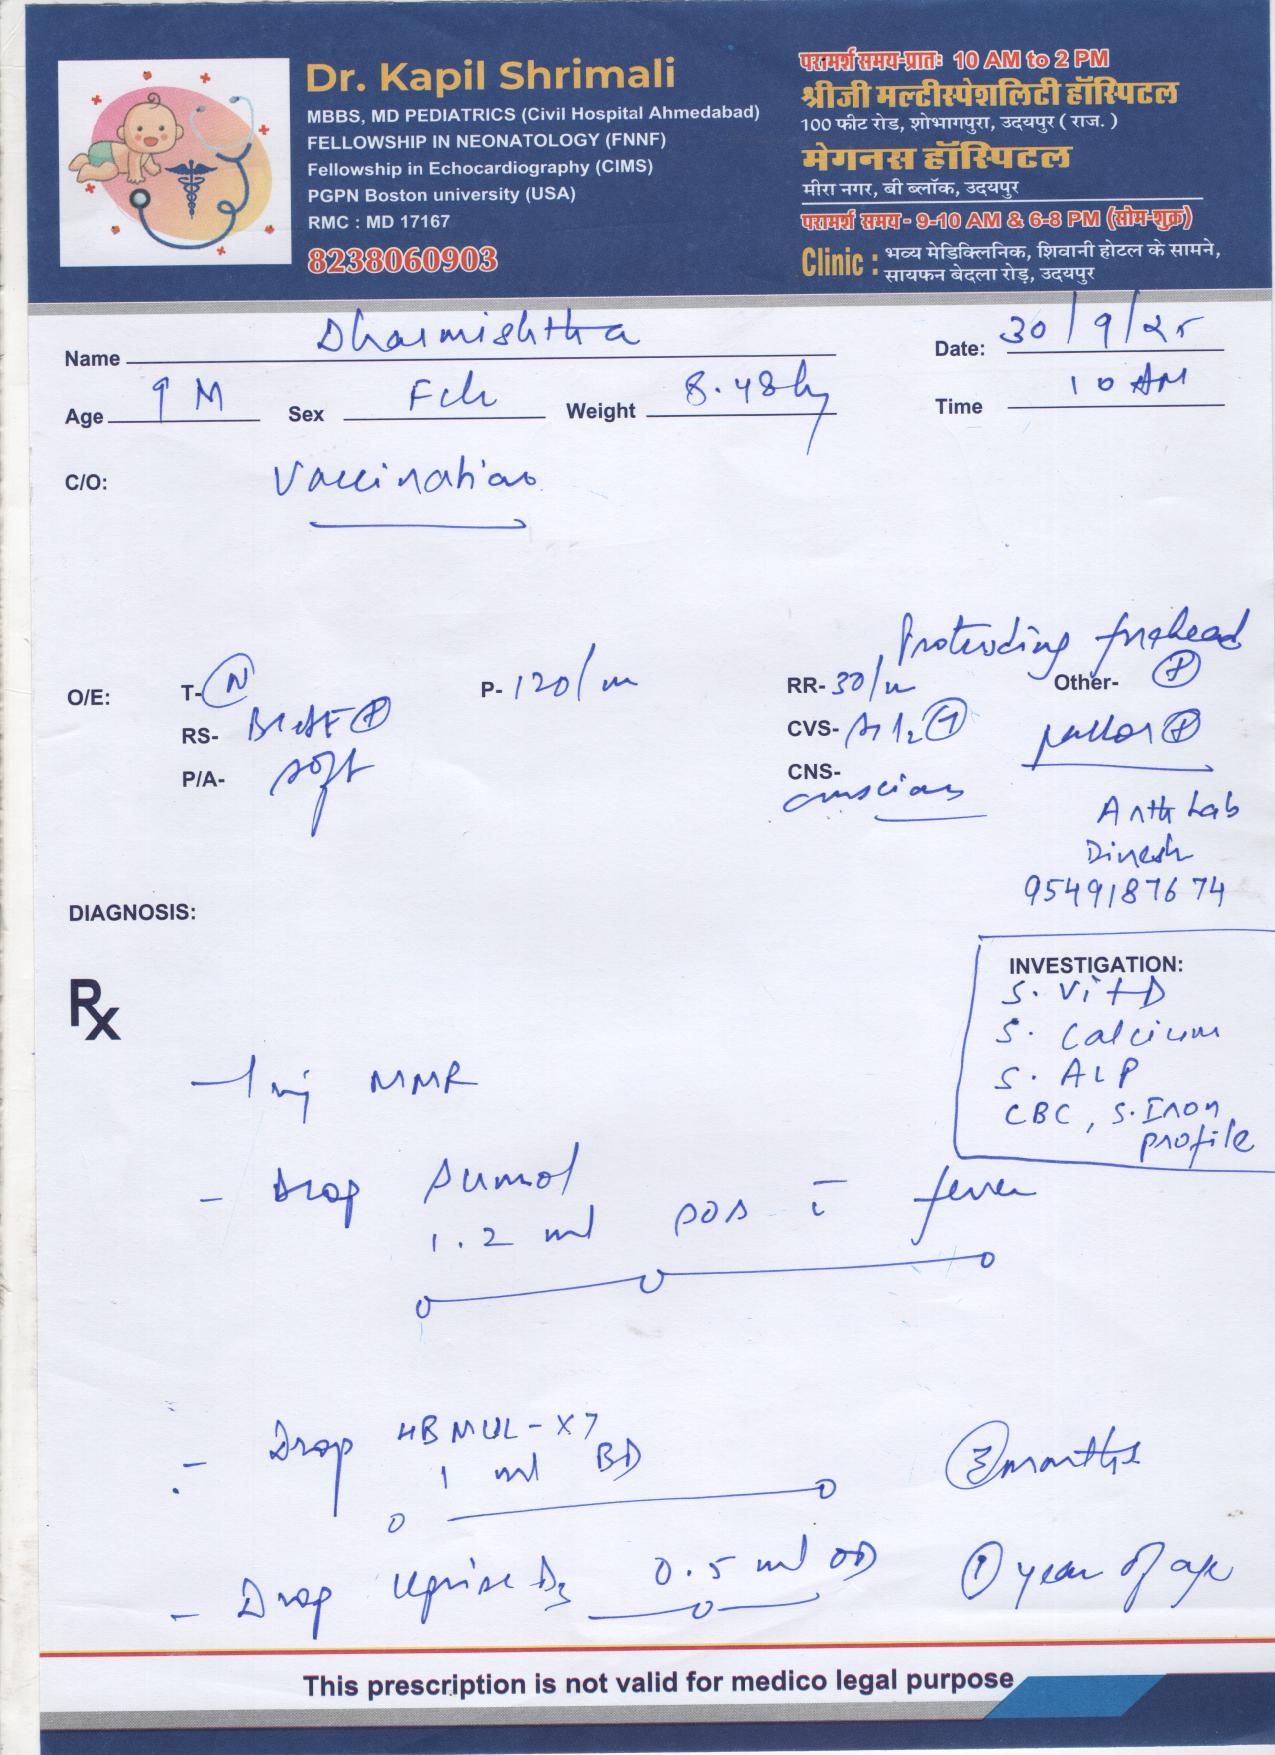 Dr. Kapil Shrimali
MBBS, MD PEDIATRICS (Civil Hospital Ahmedabad)
FELLOWSHIP IN NEONATOLOGY (FNNF)
Fellowship in Echocardiography (CIMS)
PGPN Boston university (USA)
RMC : MD 17167
8238060903
परामर्श समय-प्रातः 10 AM to 2 PM
श्रीजी मल्टीस्पेशलिटी हॉस्पिटल
100 फीट रोड, शोभागपुरा, उदयपुर ( राज. )
मेगनस हॉस्पिटल
मीरा नगर, बी ब्लॉक, उदयपुर
परामर्श समय - 9-10 AM & 6-8 PM (सोम-शुक्र)
Clinic : भव्य मेडिक्लिनिक, शिवानी होटल के सामने,
सायफन बेदला रोड़, उदयपुर
Name Dharmishtha Date: 30/9/25
Age 9 M Sex Fch Weight 8.48kg Time 10 AM
C/O: Vaccination
Protruding forehead
O/E: T- N P- 120/m RR- 30/m Other- P
RS- P CVS- pallor P
P/A- soft CNS-
conscious
Arth Lab
Dinesh
9549187674
DIAGNOSIS:
INVESTIGATION:
S. Vit D
S. Calcium
S. ALP
CBC, S. Iron
profile
Rx
- Inj MMR
- Drop Sumol
1.2 ml SOS c̄ fever
- Drop HBMUL-X7
1 ml BD 3 months
- Drop Uprise D3 0.5 ml OD 1 year of age
This prescription is not valid for medico legal purpose